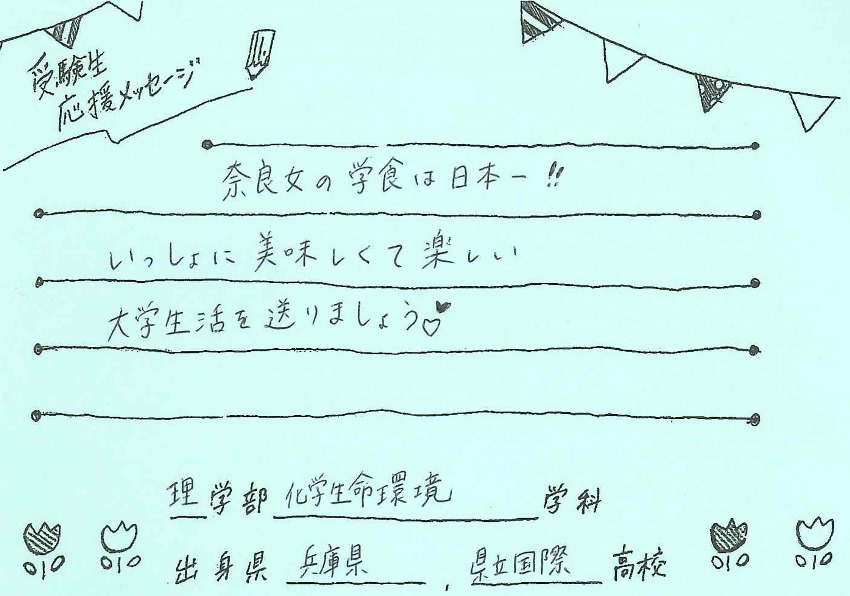 受験生
応援メッセージ
奈良女の学食は日本一!!
いっしょに美味しくて楽しい
大学生活を送りましょう♡♥
理学部 化学生命環境 学科
出身県 兵庫県 , 県立国際 高校